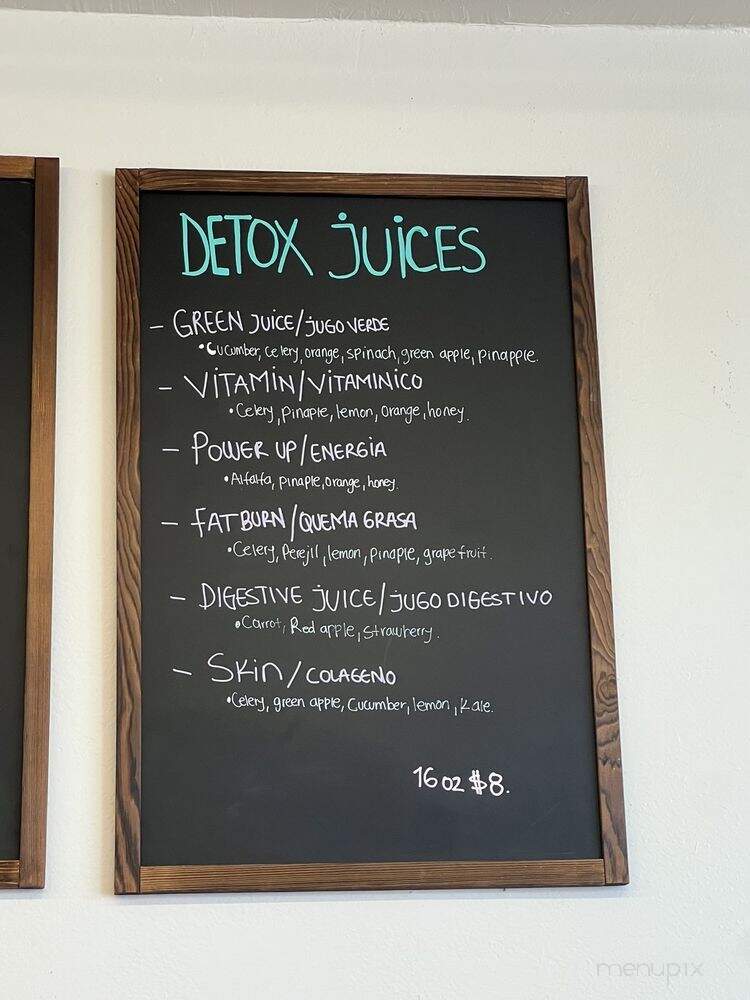 DETOX JUICES
– GREEN JUICE/JUGO VERDE
•Cucumber, celery, orange, spinach, green apple, pinapple.
– VITAMIN/VITAMINICO
•Celery, pinaple, lemon, orange, honey.
– POWER UP/ENERGIA
•Alfalfa, pinaple, orange, honey.
– FAT BURN/QUEMA GRASA
•Celery, Perejil, lemon, pinaple, grapefruit.
– DIGESTIVE JUICE/JUGO DIGESTIVO
•Carrot, Red apple, strawberry.
– SKin/COLAGENO
•Celery, green apple, Cucumber, lemon, Kale.
16 oz $8.
menupix